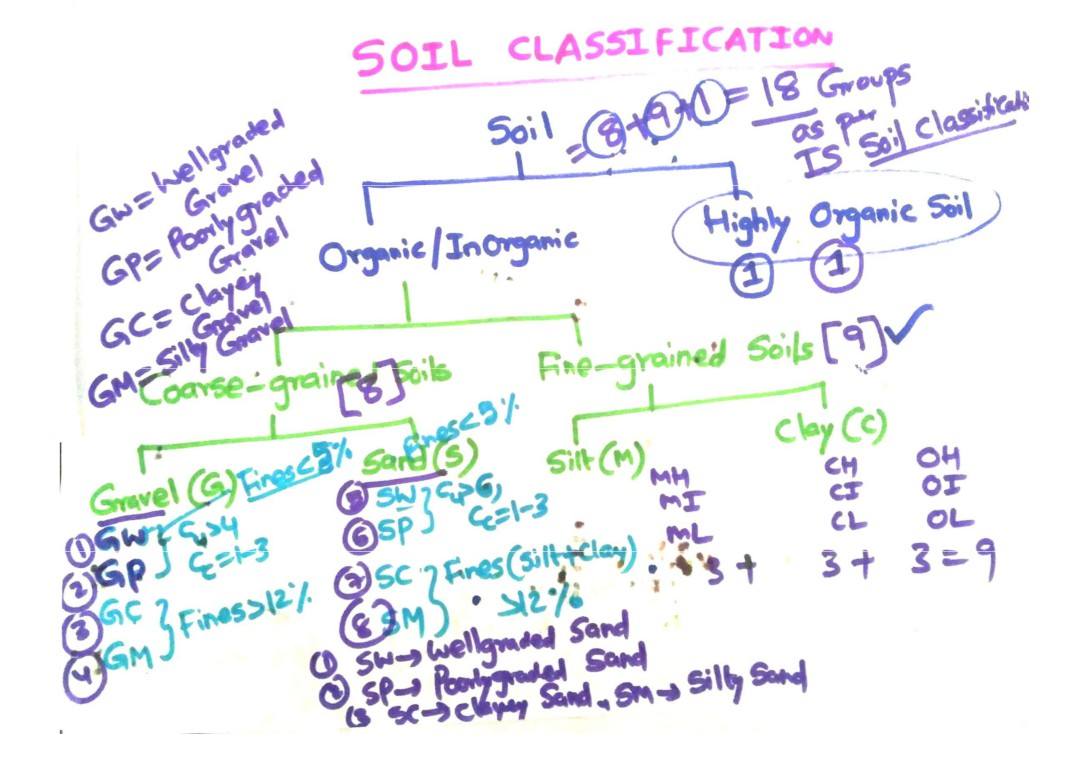 SOIL CLASSIFICATION
Soil = 8+9+1 = 18 Groups
as per
IS Soil Classificati
GW= Wellgraded
Gravel
GP= Poorly graded
Gravel
GC= Clayey
Gravel
GM= Silty Gravel
Organic/InOrganic
Highly Organic Soil
1 1
Coarse-grained Soils
[8]
Fine-grained Soils [9] ✓
Gravel (G) Fines<5%
① GW } Cu>4
② GP } Cc=1-3
③ GC } Fines>12%
④ GM
Sand (S) Fines<5%
⑤ SW } Cu>6,
⑥ SP } Cc=1-3
⑦ SC } Fines (Silt+Clay)
⑧ SM } >12%
Silt (M)
MH
MI
ML
Clay (C)
CH OH
CI OI
CL OL
3 + 3 + 3 = 9
(1) SW→ Wellgraded Sand
(2) SP→ Poorlygraded Sand
(3 SC→ Clayey Sand, SM→ Silty Sand